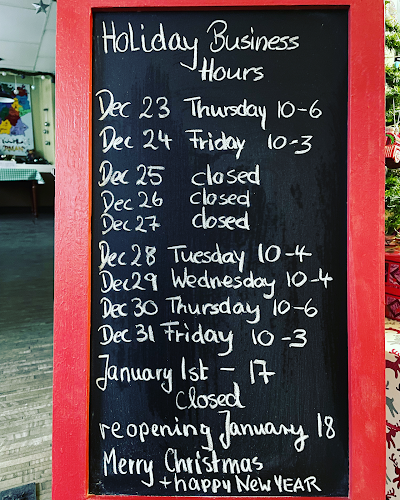 Holiday Business
Hours
Dec 23 Thursday 10-6
Dec 24 Friday 10-3
Dec 25 closed
Dec 26 closed
Dec 27 closed
Dec 28 Tuesday 10-4
Dec 29 Wednesday 10-4
Dec 30 Thursday 10-6
Dec 31 Friday 10-3
January 1st - 17
Closed
reopening January 18
Merry Christmas
+ happy New YEAR